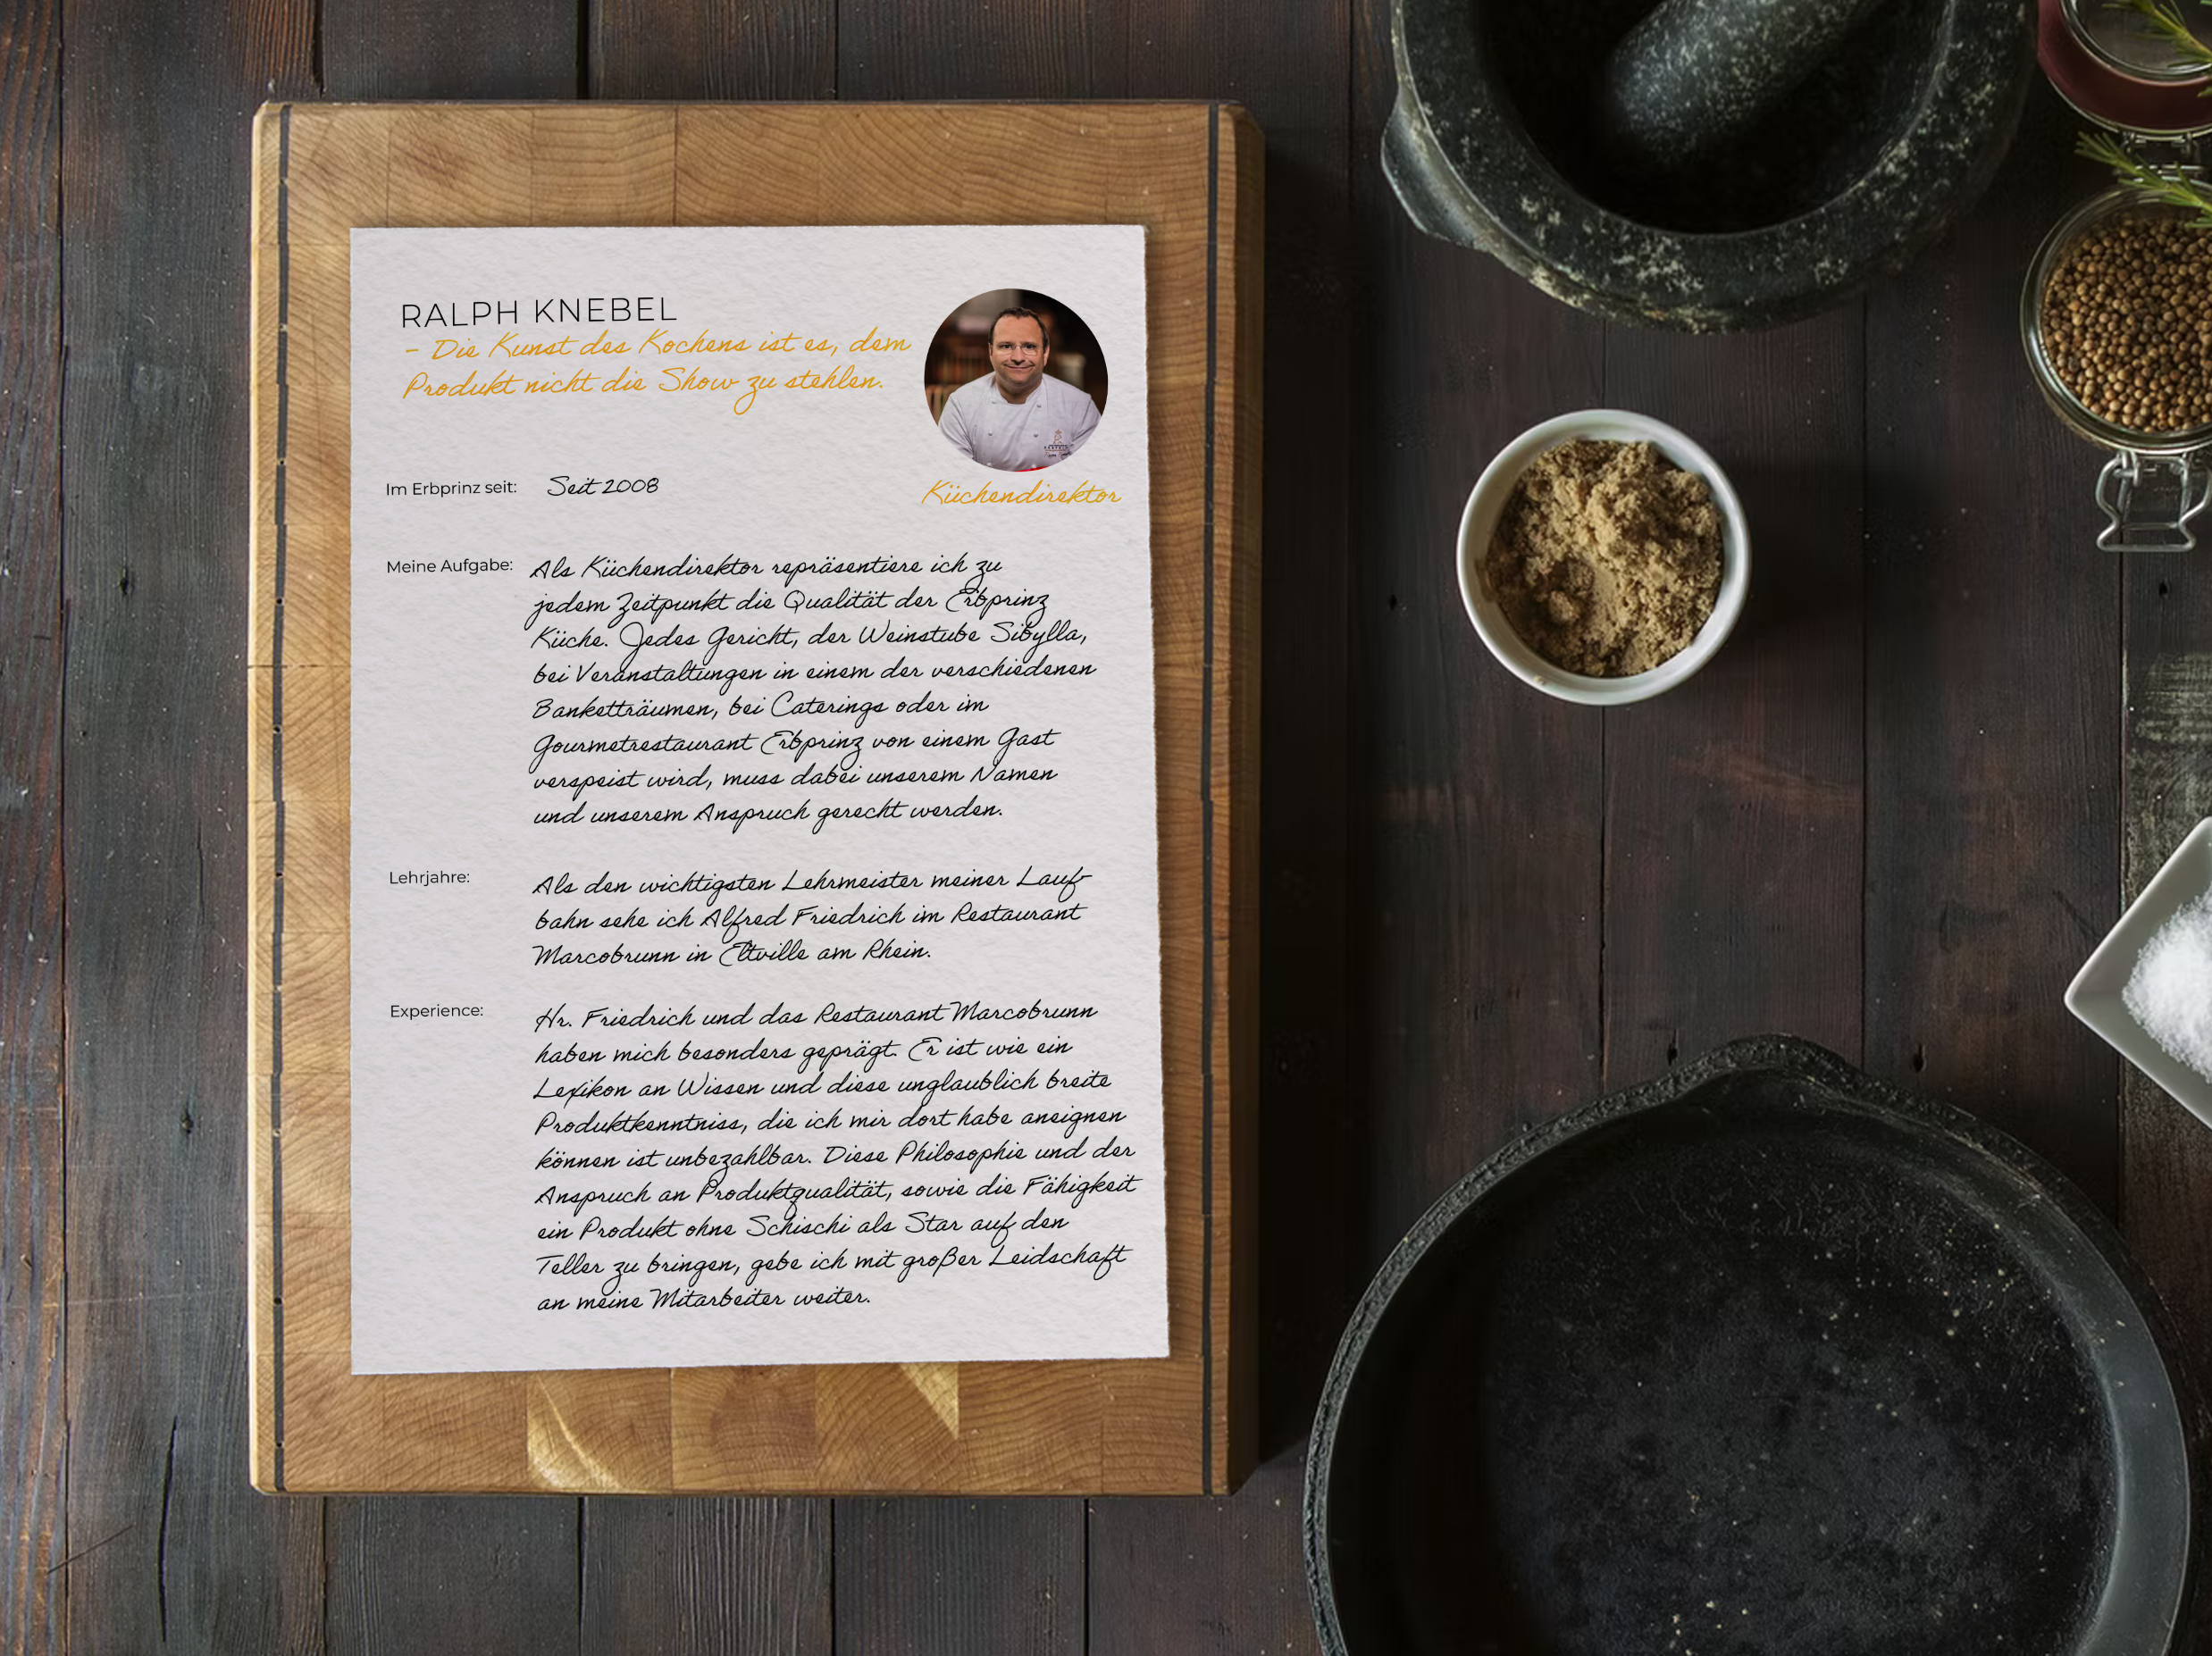 RALPH KNEBEL
– Die Kunst des Kochens ist es, dem
Produkt nicht die Show zu stehlen.
Küchendirektor
Im Erbprinz seit: Seit 2008
Meine Aufgabe: Als Küchendirektor repräsentiere ich zu
jedem Zeitpunkt die Qualität der Erbprinz
Küche. Jedes Gericht, der Weinstube Sibylla,
bei Veranstaltungen in einem der verschiedenen
Banketträumen, bei Caterings oder im
Gourmetrestaurant Erbprinz von einem Gast
verspeist wird, muss dabei unserem Namen
und unserem Anspruch gerecht werden.
Lehrjahre: Als den wichtigsten Lehrmeister meiner Lauf-
bahn sehe ich Alfred Friedrich im Restaurant
Marcobrunn in Eltville am Rhein.
Experience: Hr. Friedrich und das Restaurant Marcobrunn
haben mich besonders geprägt. Er ist wie ein
Lexikon an Wissen und diese unglaublich breite
Produktkenntniss, die ich mir dort habe aneignen
können ist unbezahlbar. Diese Philosophie und der
Anspruch an Produktqualität, sowie die Fähigkeit
ein Produkt ohne Schischi als Star auf den
Teller zu bringen, gebe ich mit großer Leidschaft
an meine Mitarbeiter weiter.